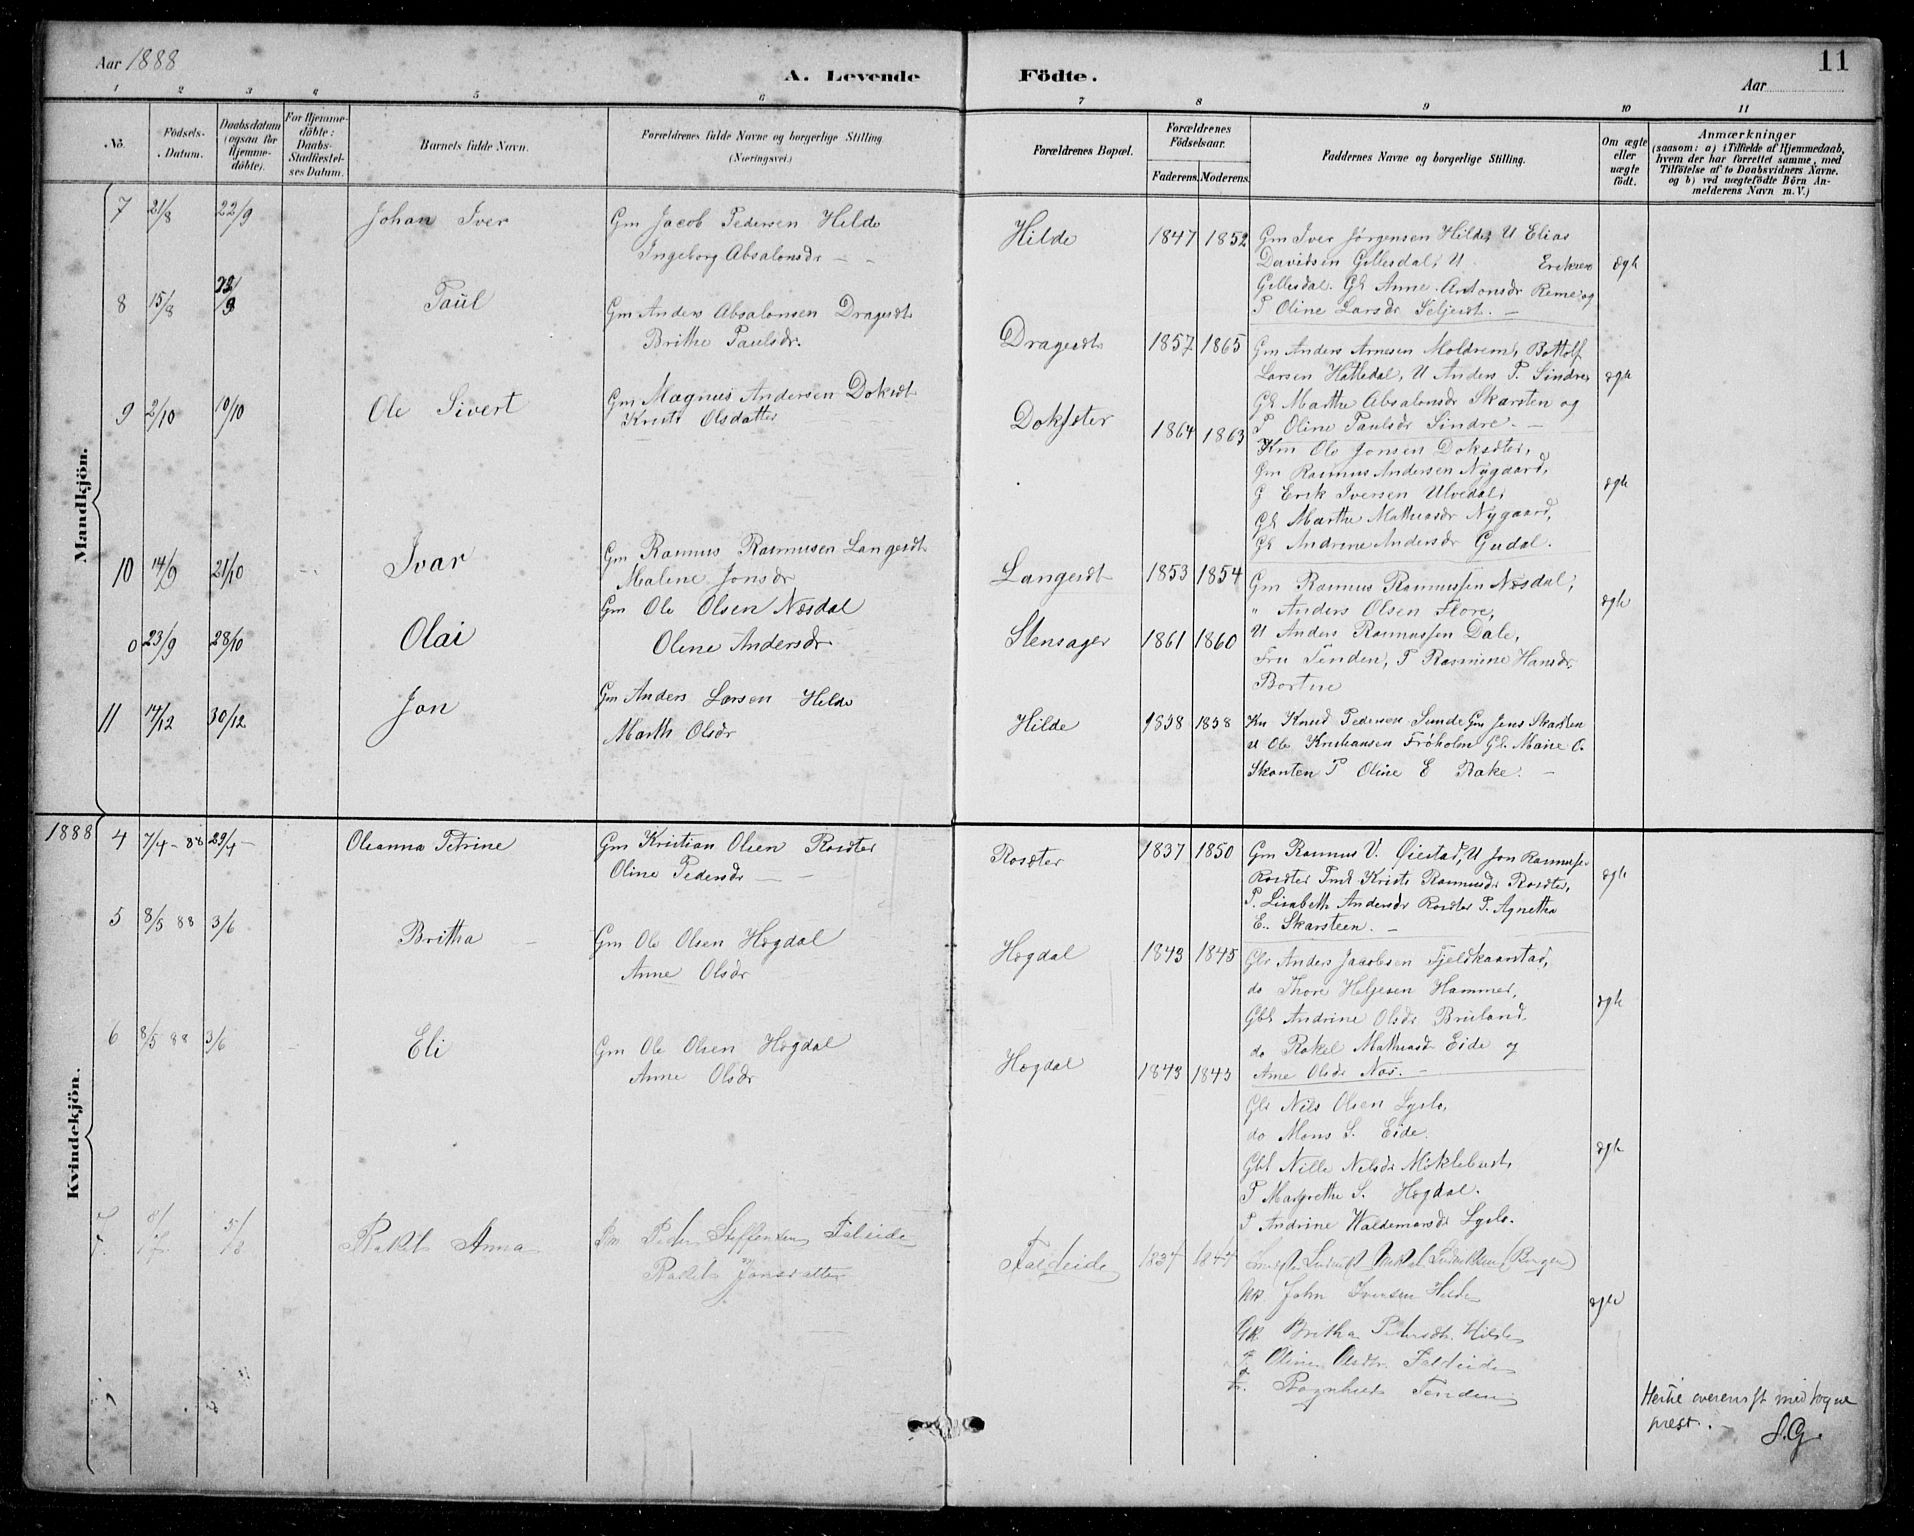 Aar 1888
A. Levende Födte.
Aar
11
1 2 3 4 5 6 7 8 9 10 11
No.
Födsels-Datum.
Daabsdatum (ogsaa for Hjemme-döbte).
For Hjemme-döbte: Daabs-Stadfæstel-ses Datum.
Barnets fulde Navn.
Forældrenes fulde Navne og borgerlige Stilling. (Næringsvei.)
Forældrenes Bopæl.
Forældrenes Födselsaar.
Faderens. Moderens.
Faddernes Navne og borgerlige Stilling.
Om ægte eller uægte födt.
Anmærkninger
(saasom: a) i Tilfælde af Hjemmedaab, hvem der har forrettet samme, med Tilföielse af to Daabsvidners Navne, og b) ved uægtefödte Börn An-melderens Navn m. V.)
Mandkjön.
7 21/8 22/9 Johan Iver
Gm Jacob Pedersen Hilde
Ingeborg Absalonsdr
Hilde 1847 1852
Gm Iver Jørgensen Hilde, U Elias
Davidsen Gillesdal, U Eriksen
Gillesdal. Gk Anne Antonsdr Reme og
P Oline Larsdr Seljesdt.
ægte
8 15/8 23/9 Paul
Gm Anders Absalonsen Dragesdt
Brithe Paulsdr.
Dragesdt 1857 1865
Gm Anders Arnesen Moldrem, Bottolf
Larsen Hatledal, U Anders P. Sindre,
Gk Marthe Absalonsdr Skarsten og
P Oline Paulsdr Sindre.
ægte
9 2/10 10/10 Ole Sivert
Gm Magnus Andersen Doksdt
Kristi Olsdatter
Dokseter 1864 1863
Km Ole Jonsen Doksdter,
Gm Rasmus Andersen Nygaard,
G Erik Iversen Ulvedal,
Gk Marthe Mathiasdr Nygaard,
Gk Andrine Andersdr Gudal.
ægte
10 14/9 21/10 Ivar
Gm Rasmus Rasmusen Langesdt
Malene Jonsdr
Langesdt 1853 1854
Gm Rasmus Rasmussen Nesdal,
" Anders Olsen Flore,
ægte
0 23/9 28/10 Olai
Gm Ole Olsen Næsdal
Oline Andersdr
Stensager 1861 1860
U Anders Rasmussen Dale,
Fru Tenden, P Rasmine Hansdr
Bortne
11 14/12 30/12 Jon
Gm Anders Larsen Hilde
Marth Olsdr
Hilde 1838 1838
Km Knud Pedersen Sunde Gm Jens Skarsten
U Ole Kristiansen Frøholm Gk Marie O.
Skarsten P Oline E Rake.
1888
Kvindekjön.
4 7/4 - 88 29/4 - Oleanna Petrine
Gm Kristian Olsen Rosdter
Oline Pedersdr
Rosdter 1837 1850
Gm Rasmus V. Øiestad, U Jon Rasmusen
Rosdter Pmd Kristi Rasmusdr Rosdter,
P. Lisabeth Andersdr Rosdter P. Agnetha
E. Skarsteen.
ægte
5 8/5 88 3/6 Britha
Gm Ole Olsen Hogdal
Anne Olsdr
Hogdal 1843 1845
Gbr Anders Jacobsen Fjeldkaarstad,
do Thore Heljesen Hammer,
Gbk Andrine Olsdr Bruland,
do Rakel Mathiasdr Eide og
Ane Olsdr Nos.
ægte
6 8/5 88 3/6 Eli
Gm Ole Olsen Hogdal
Anne Olsdr
Hogdal 1843 1843
Gbr Nils Olsen Lyslo,
do Mons S. Eide.
Gbk Nille Nilsdr Miklebust,
P Margrethe S. Hogdal.
P Andrine Waldemarsdr Lyslo.
ægte
7 8/7 5/8 Rakel Anna
Gm Peder Steffensen Faleide
Rakel Jonsdatter
Faleide 1834 1844
John Iversen Hilde
Gk Britha Pedersdtr. Hilde
P Oline Olsdtr. Faleide
Fr. Ragnhild Tenden
ægte
Hertil overensst med sogne
præst. S.G.